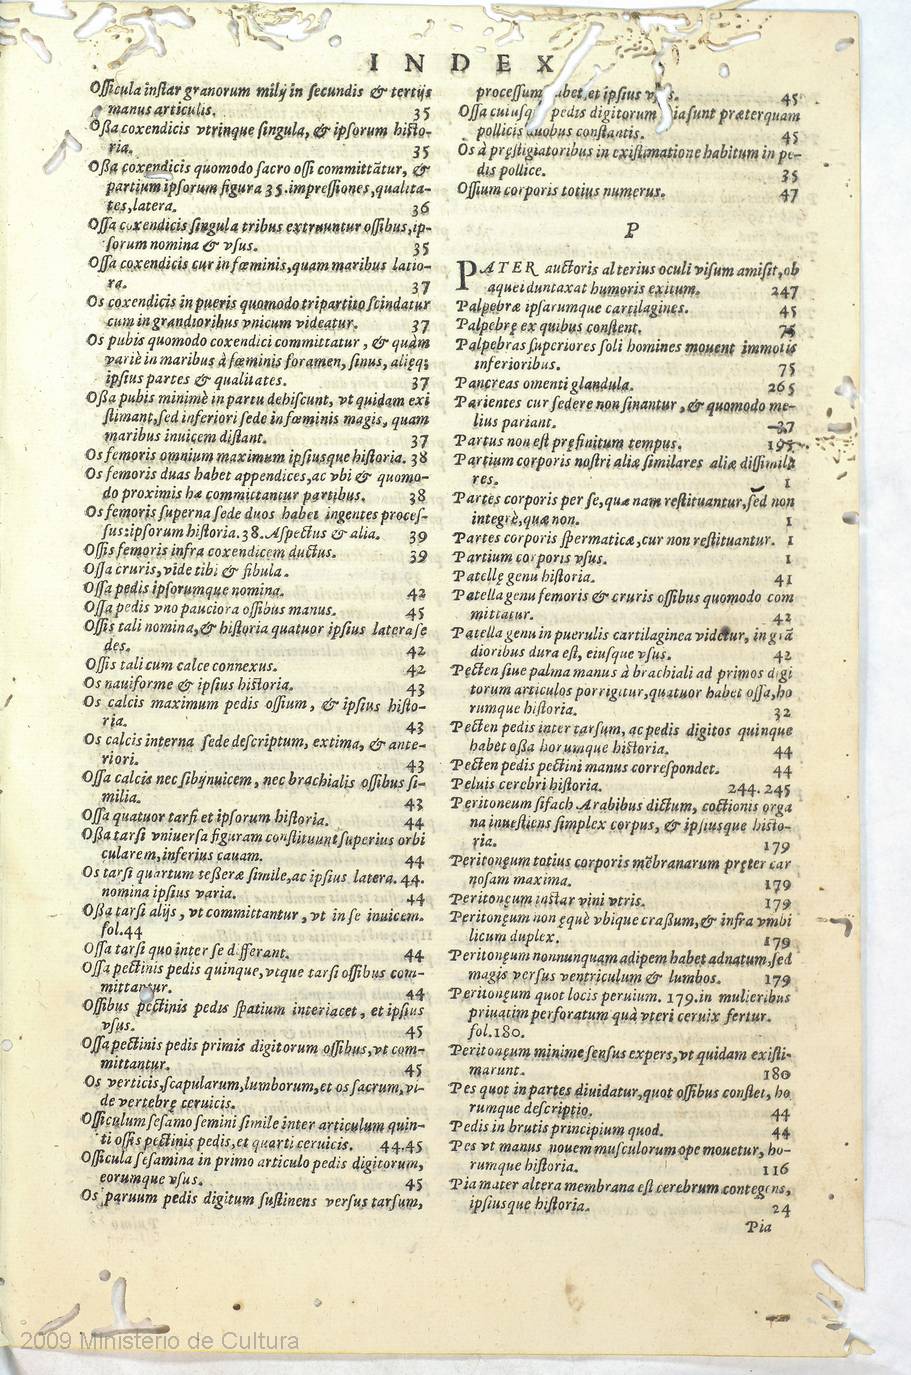 INDEX
Oſſicula inſtar granorum milij in ſecundis & tertijs
manus articulis. 35
Oßa coxendicis vtrinque ſingula, & ipſorum hiſto-
ria. 35
Oßa coxendicis quomodo ſacro oſſi committãtur, &
partium ipſorum figura 35. impreſſiones, qualita-
tes, latera. 36
Oſſa coxendicis ſingula tribus extruuntur oſſibus, ip-
ſorum nomina & vſus. 35
Oſſa coxendicis cur in fœminis, quam maribus latio-
ra. 37
Os coxendicis in pueris quomodo tripartito ſcindatur
cum in grandioribus vnicum videatur. 37
Os pubis quomodo coxendici committatur, & quàm
variè in maribus à fœminis foramen, ſinus, alięq;
ipſius partes & qualitates. 37
Oßa pubis minimè in partu dehiſcunt, vt quidam exi
ſtimant, ſed inferiori ſede in fœminis magis, quam
maribus inuicem diſtant. 37
Os femoris omnium maximum ipſiusque hiſtoria. 38
Os femoris duas habet appendices, ac vbi & quomo-
do proximis hæ committantur partibus. 38
Os femoris ſuperna ſede duos habet ingentes proceſ-
ſus: ipſorum hiſtoria. 38. Aſpectus & alia. 39
Oſſis femoris infra coxendicem ductus. 39
Oſſa cruris, vide tibi & fibula.
Oſſa pedis ipſorumque nomina. 42
Oſſa pedis vno pauciora oſſibus manus. 45
Oſſis tali nomina, & hiſtoria quatuor ipſius latera ſe
des. 42
Oſſis tali cum calce connexus. 42
Os nauiforme & ipſius hiſtoria. 43
Os calcis maximum pedis oſſium, & ipſius hiſto-
ria. 43
Os calcis interna ſede deſcriptum, extima, & ante-
riori. 43
Oſſa calcis nec ſibijnuicem, nec brachialis oſſibus ſi-
milia. 43
Oſſa quatuor tarſi et ipſorum hiſtoria. 44
Oßa tarſi vniuerſa figuram conſtituunt ſuperius orbi
cularem, inferius cauam. 44
Os tarſi quartum teßeræ ſimile, ac ipſius latera. 44.
nomina ipſius varia. 44
Oßa tarſi alijs, vt committantur, vt in ſe inuicem.
fol. 44
Oſſa tarſi quo inter ſe differant. 44
Oſſa pectinis pedis quinque, vtque tarſi oſſibus com-
mittantur. 44
Oſſibus pectinis pedis ſpatium interiacet, et ipſius
vſus. 45
Oſſa pectinis pedis primis digitorum oſſibus, vt com-
mittantur. 45
Os verticis, ſcapularum, lumborum, et os ſacrum, vi-
de vertebrę ceruicis.
Oſſiculum ſeſamo ſemini ſimile inter articulum quin-
ti oſſis pectinis pedis, et quarti ceruicis. 44.45
Oſſicula ſeſamina in primo articulo pedis digitorum,
eorumque vſus. 45
Os paruum pedis digitum ſuſtinens verſus tarſum,
proceſſum et ipſius 45
Oſſa pedis digitorum præterquam
pollicis duobus conſtantis. 45
Os à pręſtigiatoribus in exiſtimatione habitum in pe-
dis pollice. 35
Oſſium corporis totius numerus. 47
P
PATER auctoris alterius oculi viſum amiſit, ob
aquei duntaxat humoris exitum. 247
Palpebræ ipſarumque cartilagines. 45
Palpebrę ex quibus conſtent.
Palpebras ſuperiores ſoli homines mouent immotis
inferioribus. 75
Pancreas omenti glandula. 265
Parientes cur ſedere non ſinantur, & quomodo me-
lius pariant. 37
Partus non eſt pręfinitum tempus. 195
Partium corporis noſtri aliæ ſimilares aliæ diſſimila
res. 1
Partes corporis per ſe, quæ nam reſtituantur, ſed non
integrè, quæ non. 1
Partes corporis ſpermaticæ, cur non reſtituantur. 1
Partium corporis vſus. 1
Patellę genu hiſtoria. 41
Patella genu femoris & cruris oſſibus quomodo com
mittatur. 42
Patella genu in puerulis cartilaginea videtur, in grã
dioribus dura eſt, eiuſque vſus. 42
Pecten ſiue palma manus à brachiali ad primos digi
torum articulos porrigitur, quatuor habet oſſa, ho
rumque hiſtoria. 32
Pecten pedis inter tarſum, ac pedis digitos quinque
habet oßa horumque hiſtoria. 44
Pecten pedis pectini manus correſpondet. 44
Peluis cerebri hiſtoria. 244.245
Peritoneum ſifach Arabibus dictum, coctionis orga
na inueſtiens ſimplex corpus, & ipſiusque hiſto-
ria. 179
Peritonęum totius corporis mẽbranarum pręter car
noſam maxima. 179
Peritonęum inſtar vini vtris. 179
Peritonęum non ęquè vbique craßum, & infra vmbi
licum duplex. 179
Peritonęum nonnunquam adipem habet adnatum, ſed
magis verſus ventriculum & lumbos. 179
Peritonęum quot locis peruium. 179. in mulieribus
priuatim perforatum quà vteri ceruix fertur.
fol. 180.
Peritonęum minime ſenſus expers, vt quidam exiſti-
marunt. 180
Pes quot in partes diuidatur, quot oſſibus conſtet, ho
rumque deſcriptio. 44
Pedis in brutis principium quod. 44
Pes vt manus nouem muſculorum ope mouetur, ho-
rumque hiſtoria. 116
Pia mater altera membrana eſt cerebrum contegens,
ipſiusque hiſtoria. 24
Pia
2009 Ministerio de Cultura